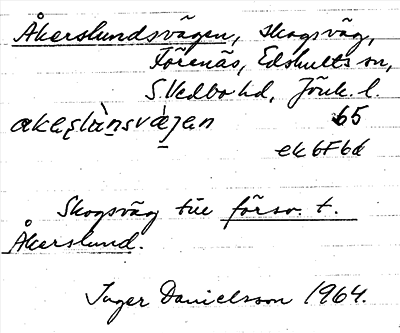 Åkerslundsvägen, skogsväg,
Förenäs, Edshults sn,
S Vedbo hd, Jönk. l.
65
ek 6F6d
Skogsväg till försv. t.
Åkerslund.
Inger Danielsson 1964.